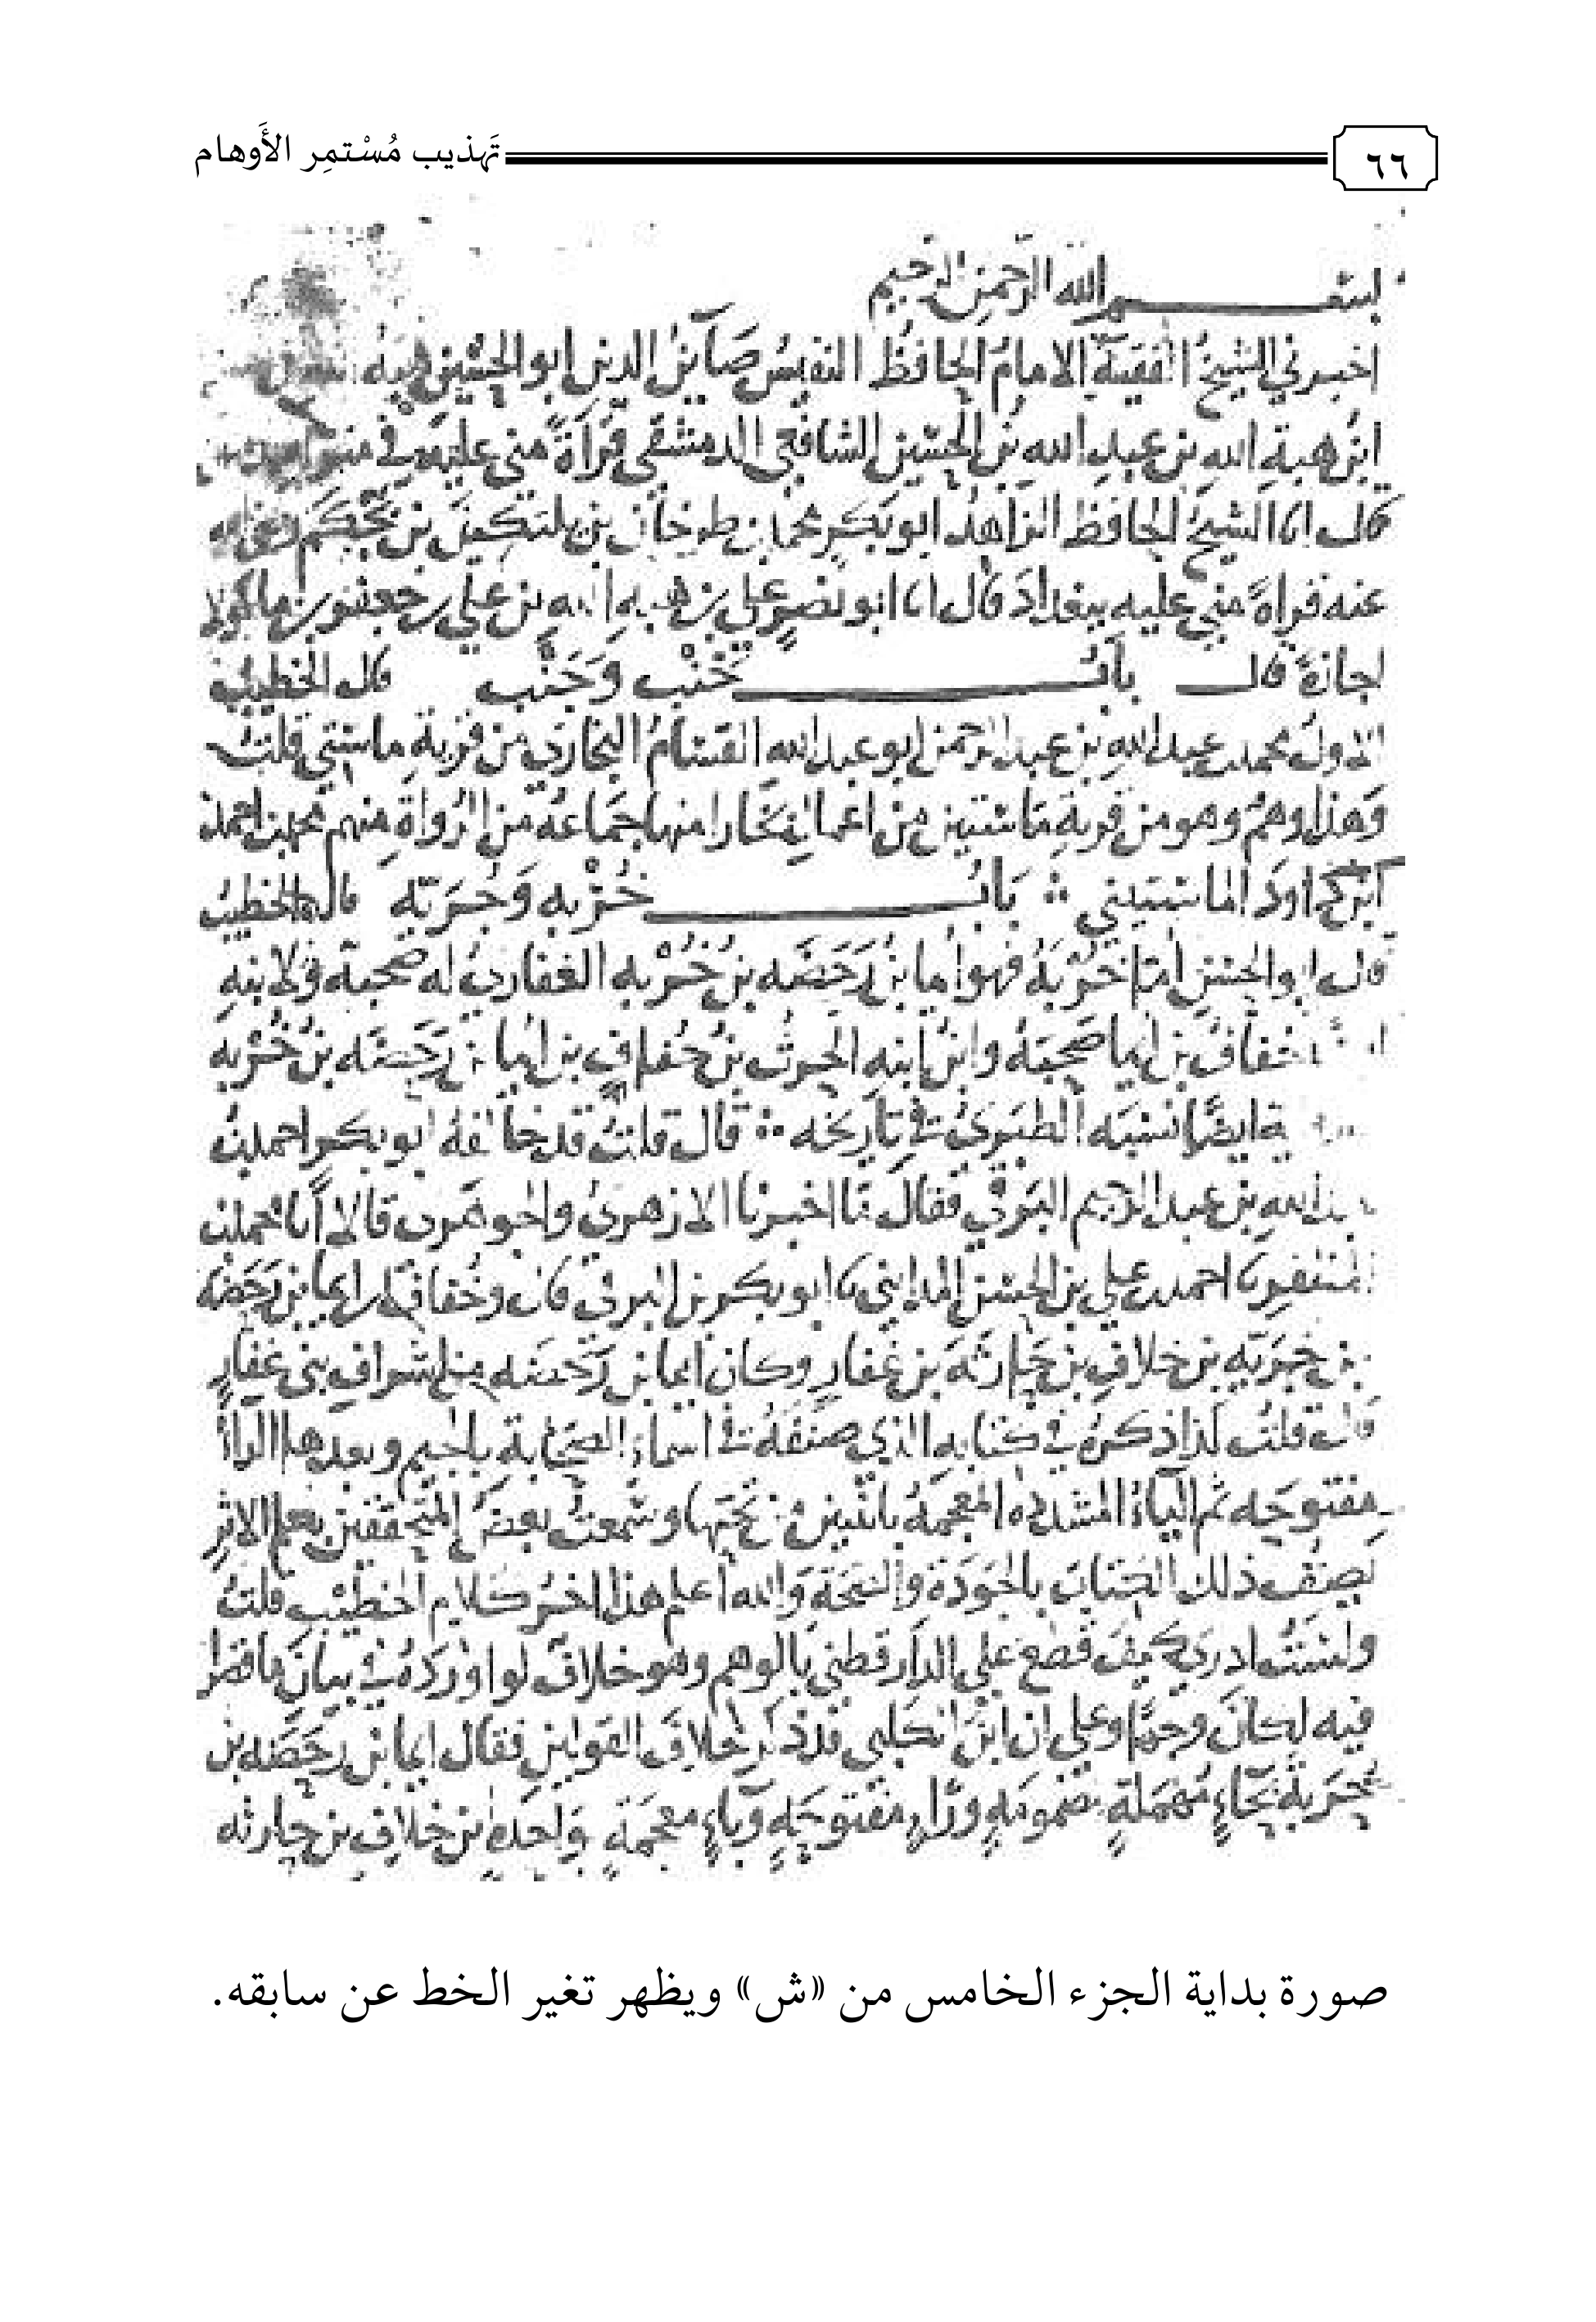 ٦٦ تَهذيب مُسْتمِر الأَوهام
بسم الله الرحمن الرحيم
اخبرني الشيخُ الفقيهُ الامامُ الحافظُ النفيسُ صَآئنُ الدين ابو الحسين هبةُ
ابنُ هبةِ الله بن عبدِ الله بنُ الحسين الشافعي الدمشقي قرآةً مني عليه في
قال انا الشيخُ الحافظ الزاهدُ ابو بكر محمد بن طرخان بن يلتكين بن بجكم رضي الله
عنه قراةً مني عليه ببغدادَ قال انا ابو نصرٍ علي بن هبه الله بن علي بن جعفر بن ماكولا
اجازةً قال بابُ خَنْب وَجَنْب قال الخطيب
الاولُ محمد بن عبد اللهِ بن عبد الرحمن ابو عبد الله القسّامُ البخاري من قرية ماستي قلتُ
وَهذا وهمٌ وهو من قريةِ مَاستين من اعمالِ بخارا منها جَمَاعَةٌ من الرُواةِ منهم محمد بن احمد
ابن داودَ الماستيني ؞ بَابُ خُرْبه وَجُرَيّه قال الخطيبُ
قال ابو الحسن امّا خُرْبَةُ فهو ايما بنُ رَحَضَه بنُ خُرْبه الغفاريُ له صحبة ولابنهِ
خُفافُ بن ايما صحبَةُ وابنُ ابنه الحرث بنُ خُفافٍ بن ايما بن رَحَضَه بنُ خُرْبه
ايضًا نسبَه الطبَريُ في تاريخه ؞ قال قلتُ قد خالفهُ ابو بكر احمد بنُ
عبد الله بن عبد الرحيم البَرْقي فقال نا اخبرنا الازهريُ والجوهَري قالا أنا محمد بن
المظفر نا احمد بن علي بن الحسن المدايني نا ابو بكر بن البرقي قال وخُفاف بن ايما بن رَحَضَه
بن جُرَيّه بن خلافِ بن حَارثةَ بن غفارٍ وكان ايما بن رَحَضَه من اشرافِ بني غفارٍ
قال قلتُ كذا ذكرهُ في كتابه الذي صنّفهُ في اسماءِ الصحَابة بالجيم وبعدها الراءُ
مفتوحَه ثم الياءُ المشدده المعجمة باثنين من تحتها وسَمعتُ بعضَ المحققين بعلم الاثرِ
يصف ذلك الكتابَ بالجَودَة والصّحّة وَالله اعلم هذا اخرُ كلام الخطيب قلتُ
ولستُ ادري كيفَ قطع علي الدارقطني بالوهم وهو خلافٌ لو اورَدهُ في بيان
فيه لكانَ وجهًا وعلي ان ابنَ الكلبي قد ذكر خلافَ القولين فقال ايما بن رحَضَه بن
حُرَبةَ بحَاءٍ مُهمَلةٍ مضمومَهٍ ورَاءٍ مفتوحَهٍ وبَاءٍ معجمَةٍ وَاحدهٍ بن خلافِ بن حارثه
صورة بداية الجزء الخامس من «ش» ويظهر تغير الخط عن سابقه.